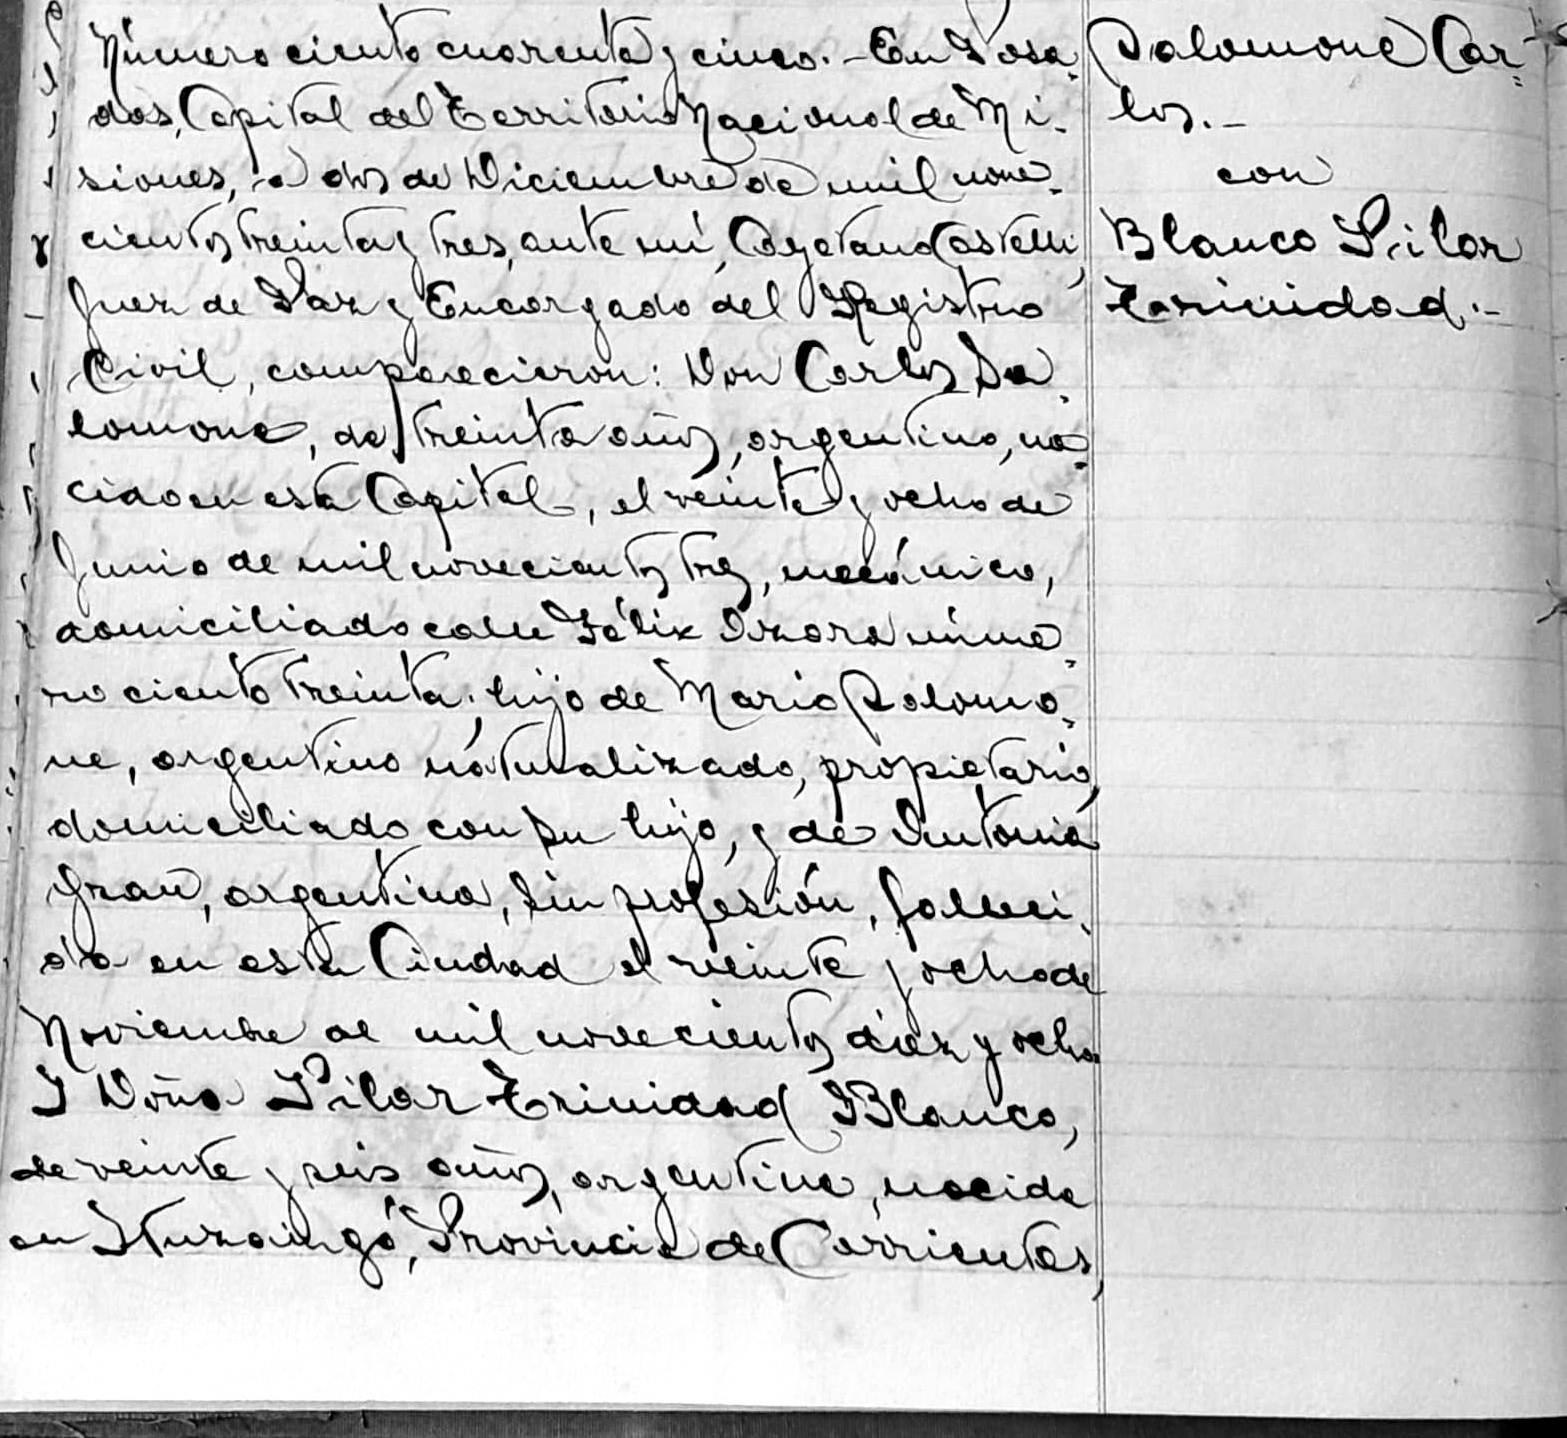 Número ciento cuarenta y cinco.- En Posa-
das, Capital del Territorio Nacional de Mi-
siones, a dos de Diciembre de mil nove-
cientos treinta y tres, ante mí, Cayetano Castelli,
Juez de Paz y Encargado del Registro
Civil, comparecieron: Don Carlos Sa-
lomone, de treinta años, argentino, na-
cido en esta Capital, el veinte y ocho de
Junio de mil novecientos tres, mecánico,
domiciliado calle Félix Azara núme-
ro ciento treinta; hijo de Mario Salomo-
ne, argentino naturalizado, propietario,
domiciliado con su hijo, y de Antonia
argentina, sin profesión, falleci-
da en esta Ciudad el veinte y ocho de
Noviembre de mil novecientos diez y ocho
Y Doña Pilar Trinidad Blanco,
de veinte y seis años, argentina, nacida
en Ituzaingó, Provincia de Corrientes,
Salomone Car-
los.-
con
Blanco Pilar
Trinidad.-